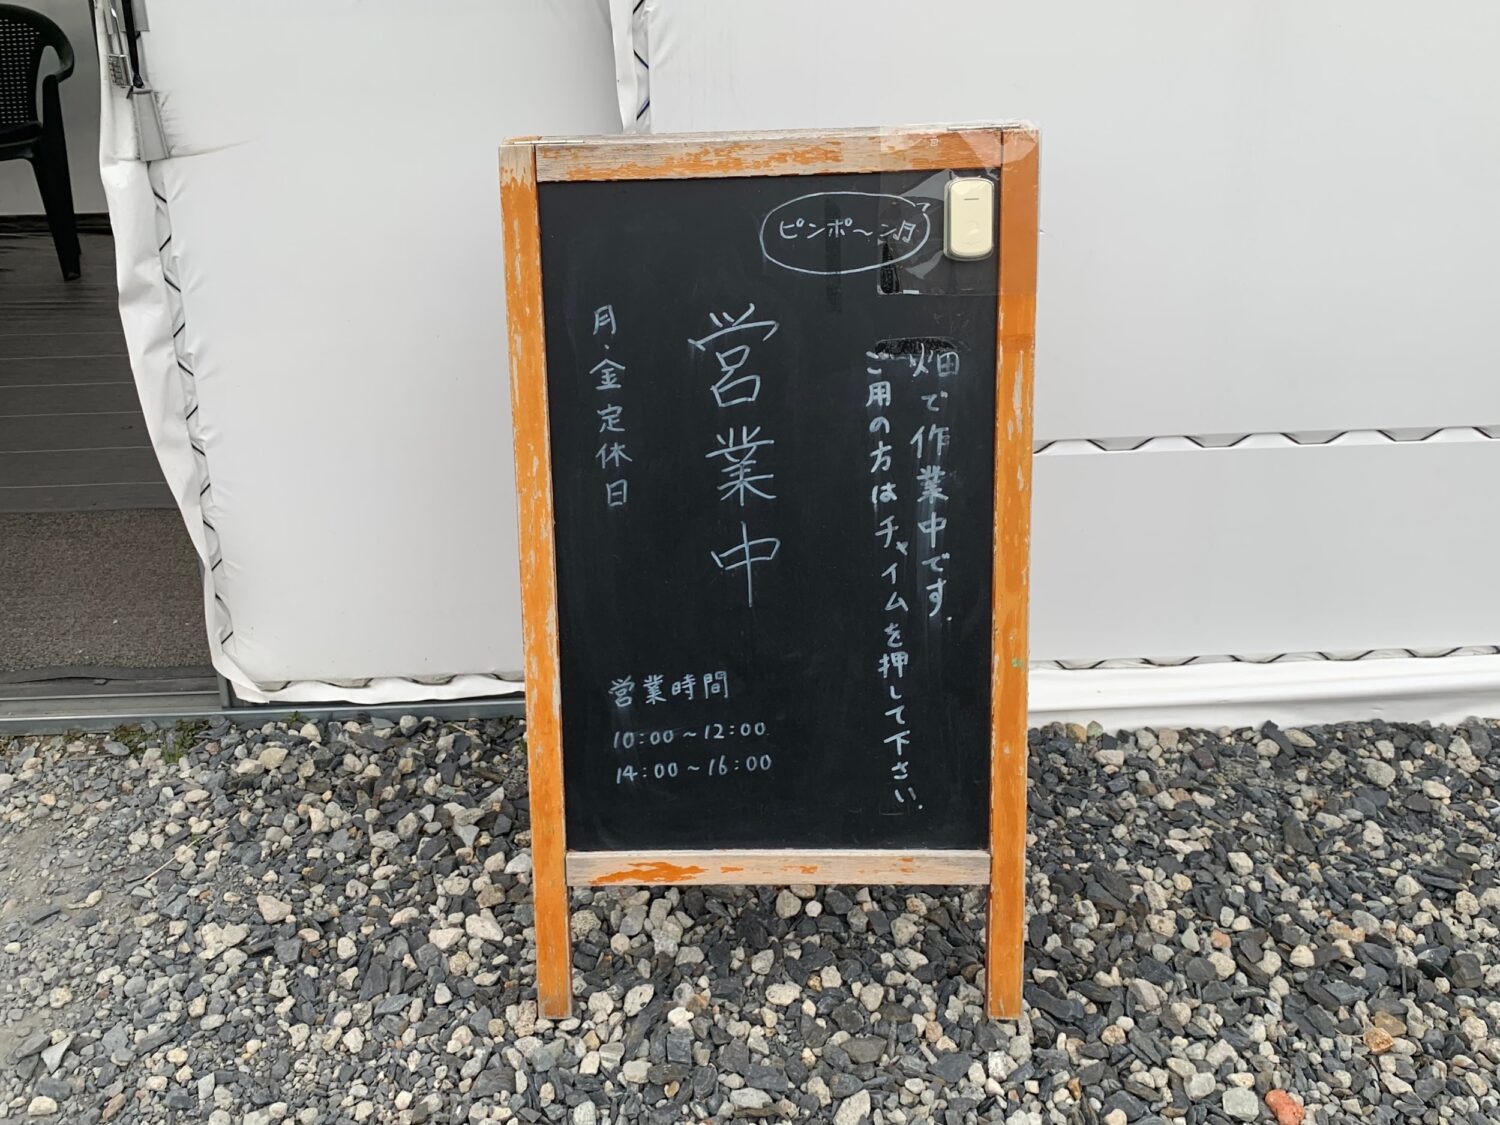 ピンポ〜ン♬
畑で作業中です.
ご用の方はチャイムを押して下さい.
営業中
月・金定休日
営業時間
10:00〜12:00
14:00〜16:00